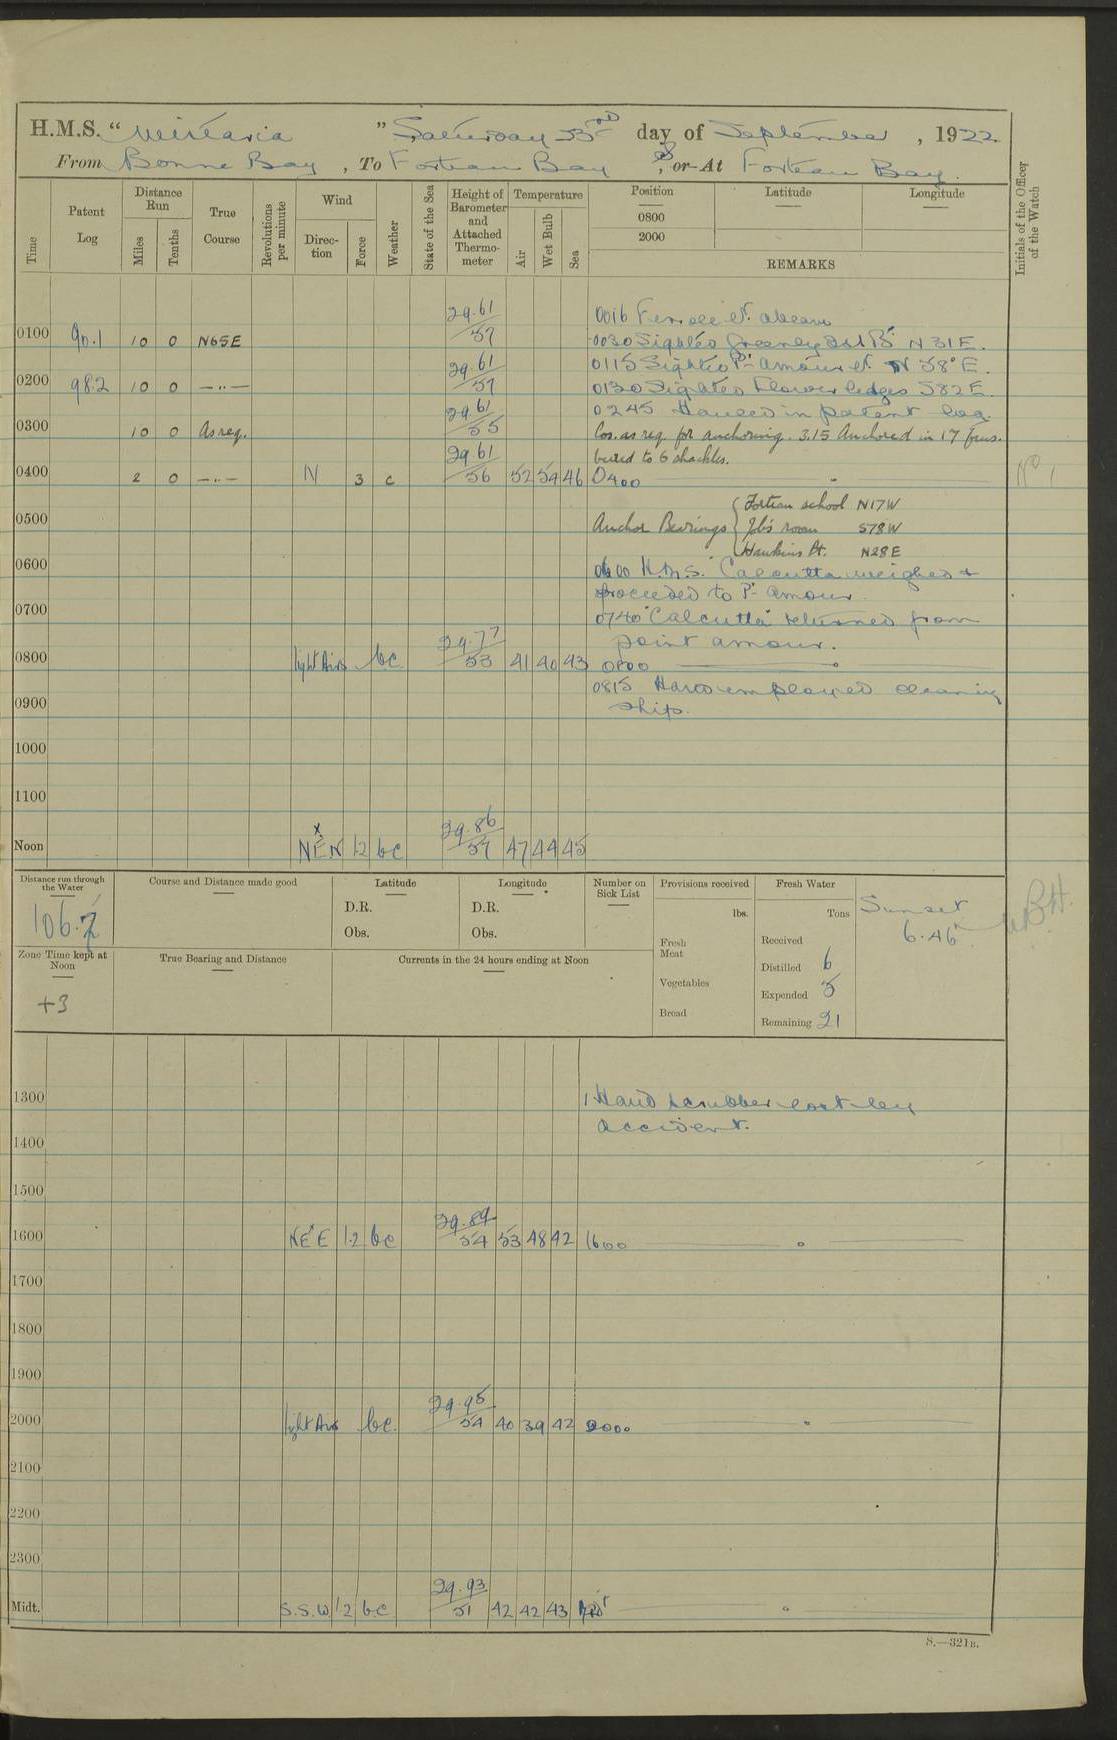 H.M.S. " Wistaria " Saturday 23rd day of September, 1922
From Bonne Bay, To Forteau Bay, or At Forteau Bay.
Time
Patent Log
Distance Run
Miles
Tenths
True Course
Revolutions per minute
Wind
Direction
Force
Weather
State of the Sea
Height of Barometer and Attached Thermometer
Temperature
Air
Wet Bulb
Sea
Position
Latitude
Longitude
0800
2000
REMARKS
Initials of the Officer of the Watch
29.61 0016 Ferrole Pt. abeam
0100 90.1 10 0 N65E 57 0030 Sighted Greenly Isld N 31 E.
29.61 0115 Sighted Pt. Amour Lt. N 58° E.
0200 98.2 10 0 —"— 57 0130 Sighted Flower ledges S82E
29.61 0245 Hauled in patent log.
0300 10 0 As req. 55 Cos. as req. for anchoring. 3.15 Anchored in 17 fms.
29.61 veered to 6 shackles.
0400 2 0 —"— N 3 c 56 52 54 46 0400
Fortian school N17W
0500 Anchor Bearings Job's room S78W
Hawkins Pt. N28E
0600 0600 H.M.S. "Calcutta" weighed &
proceeded to Pt. Amour.
0700 0740 "Calcutta" returned from
29.77 point amour.
0800 light Airs bc 53 41 40 43 0800
0815 Hands employed cleaning
0900 ship.
1000
1100
29.86
Noon NE'N 1.2 bc 57 47 44 45
Distance run through the Water
106.7
Course and Distance made good
Latitude
D.R.
Obs.
Longitude
D.R.
Obs.
Number on Sick List
Provisions received
lbs.
Fresh Meat
Vegetables
Bread
Fresh Water
Tons
Received
Distilled 6
Expended 5
Remaining 21
Sunset
6.46
Zone Time kept at Noon
+3
True Bearing and Distance
Currents in the 24 hours ending at Noon
1300 1 Hand scrubber lost by
accident.
1400
1500
29.89
1600 NE'E 1.2 bc 54 53 48 42 1600
1700
1800
1900
29.95
2000 light Airs bc. 54 40 39 42 2000
2100
2200
2300
29.93
Midt. S.S.W 1.2 bc 51 42 42 43
S.—321B.